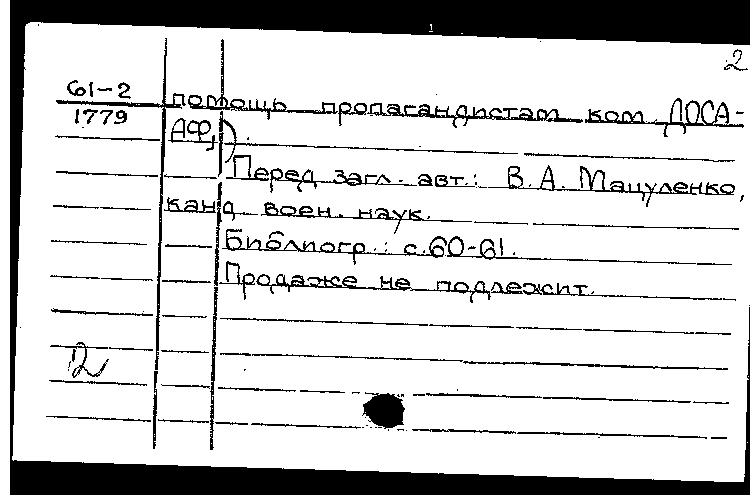 2
61-2
1779
помощь пропагандистам ком. ДОСА-
АФ).
Перед загл. авт.: В.А. Мацуленко,
канд. воен. наук.
Библиогр.: с.60-61.
Продаже не подлежит.